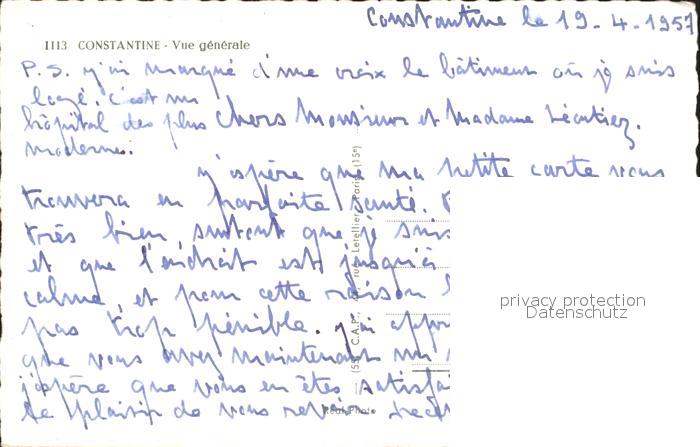 Constantine le 19-4-1957
1113 CONSTANTINE - Vue générale
P.S. j'ai marqué d'une croix le bâtiment où je suis
logé. C'est un
hôpital des plus
moderne.
Chers Monsieur et Madame
J'espère que ma petite carte vous
trouvera en parfaite santé.
très bien, surtout que je suis
et que l'endroit est jusqu'à
calme, et pour cette raison
pas trop pénible. J'ai
que vous avez maintenant un
j'espère que vous en êtes
le plaisir de vous revoir
(55) C.A.P., rue Letellier, Paris (15e)
Réal-Photo
privacy protection
Datenschutz